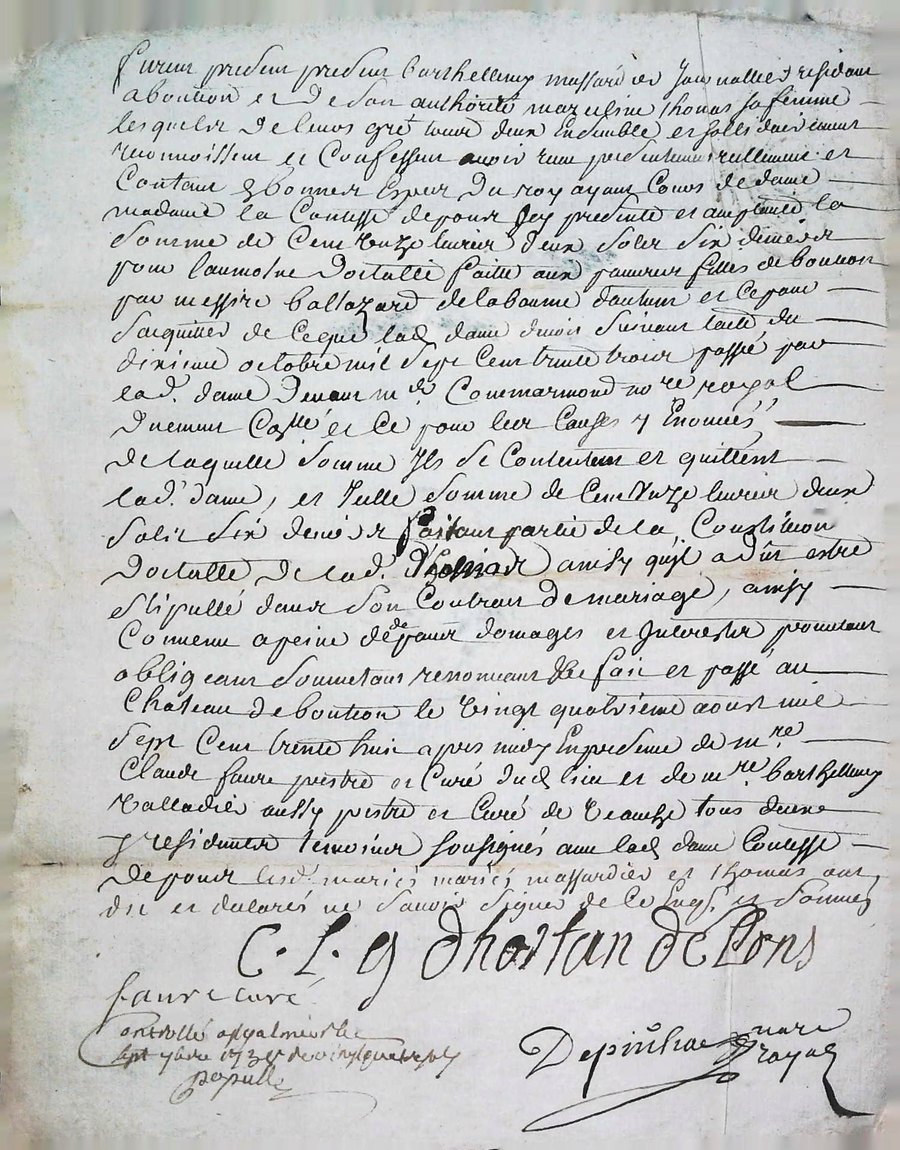 furent present present barthellemy massardier Journallier residant
a bouttion et de son authorité marguerite thomas sa femme
lesquels de leurs gré tous deux Ensemble et sollidairement
reconnoissent et Confessent avoir reçu presentement reellement et
Contant en bonnes Espesses du roy ayant Cours de dame
madame la Contesse de pons Icy presente et acceptante la
somme de Cent onze livres deux sols six deniers
pour l'aumosne dostalle faitte aux pauvres filles de bouttion
par messire baltazard de la baume d'autun et Ce pour
s'acquitter de Ce que lad. dame devoit suivant l'acte du
dixieme octobre mil sept Cent trente trois passé par
lad. dame devant me Commarmond nore royal
duement Collé et Ce pour les Causes y Enoncées
de laquelle somme Ils se Contentent et quittent
lad. dame, et telle somme de Cent onze livres deux
sols six deniers faisant partie de la Constitution
dostalle de lad. thomas ainsy qu'il a dût estre
stipullé dans son Contrat de mariage, ainsy
Convenu a peine de tous domages et Interests promettant
obligeant soumettans renonceant fait et passé au
Chateau de bouttion le vingt quatrieme aoust mil
sept Cent trente huit apres midy En presence de mre
Claude faure prestre et Curé dud. lieu et de mre barthellemy
valladier aussy prestre et Curé de veauche tous deux
y residents temoins sousignés avec lad. dame Contesse
de pons lesd. mariés mariés massardier et thomas ont
dit et declarés ne savoir signer de Ce Enqs. et sommés
C. L. g d'hostan de Pons
faure curé
Controllé a st galmier le
sept 7bre 1738
papulle
Depiuhac nore
royal